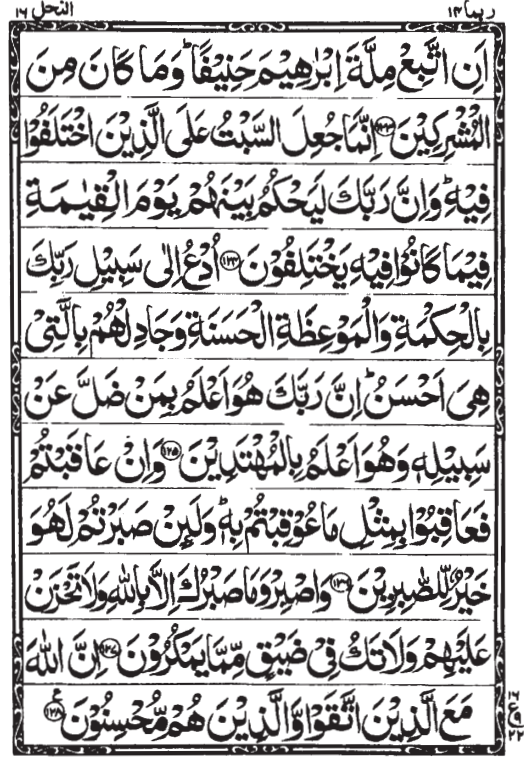 ربما ١٤ النحل ١٦
اَنِ اتَّبِعْ مِلَّةَ اِبْرٰهِيْمَ حَنِيْفًاؕ وَمَا كَانَ مِنَ
الْمُشْرِكِيْنَ ﴿١٢٣﴾ اِنَّمَا جُعِلَ السَّبْتُ عَلَى الَّذِيْنَ اخْتَلَفُوْا
فِيْهِؕ وَاِنَّ رَبَّكَ لَيَحْكُمُ بَيْنَهُمْ يَوْمَ الْقِيٰمَةِ
فِيْمَا كَانُوْا فِيْهِ يَخْتَلِفُوْنَ ﴿١٢٤﴾ اُدْعُ اِلٰى سَبِيْلِ رَبِّكَ
بِالْحِكْمَةِ وَالْمَوْعِظَةِ الْحَسَنَةِ وَجَادِلْهُمْ بِالَّتِيْ
هِيَ اَحْسَنُؕ اِنَّ رَبَّكَ هُوَ اَعْلَمُ بِمَنْ ضَلَّ عَنْ
سَبِيْلِهٖ وَهُوَ اَعْلَمُ بِالْمُهْتَدِيْنَ ﴿١٢٥﴾ وَاِنْ عَاقَبْتُمْ
فَعَاقِبُوْا بِمِثْلِ مَا عُوْقِبْتُمْ بِهٖؕ وَلَئِنْ صَبَرْتُمْ لَهُوَ
خَيْرٌ لِّلصّٰبِرِيْنَ ﴿١٢٦﴾ وَاصْبِرْ وَمَا صَبْرُكَ اِلَّا بِاللّٰهِ وَلَا تَحْزَنْ
عَلَيْهِمْ وَلَا تَكُ فِيْ ضَيْقٍ مِّمَّا يَمْكُرُوْنَ ﴿١٢٧﴾ اِنَّ اللّٰهَ
مَعَ الَّذِيْنَ اتَّقَوْا وَّالَّذِيْنَ هُمْ مُّحْسِنُوْنَ ﴿١٢٨﴾ ع
١٦
ع ٩
٢٢